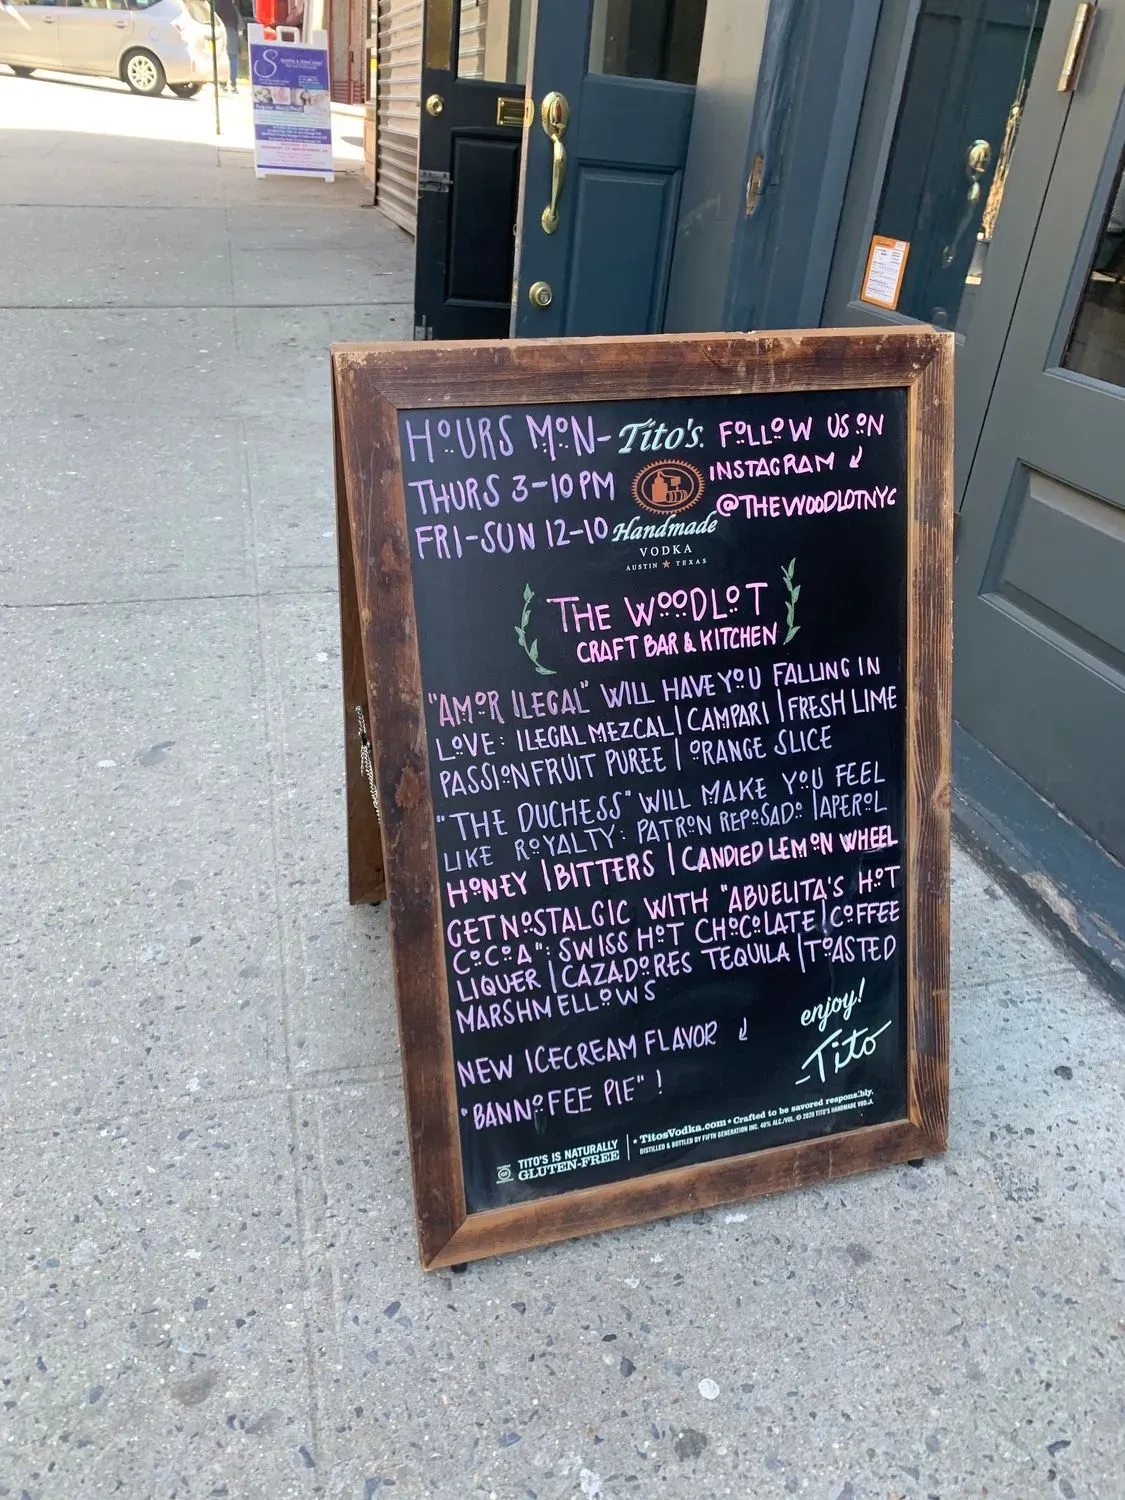 HOURS MON-
THURS 3-10PM
FRI-SUN 12-10
Tito's
Handmade
VODKA
AUSTIN ★ TEXAS
FOLLOW US ON
INSTAGRAM ↙
@THEWOODLOTNYC
THE WOODLOT
CRAFT BAR & KITCHEN
"AMOR ILEGAL" WILL HAVE YOU FALLING IN
LOVE: ILEGAL MEZCAL | CAMPARI | FRESH LIME
PASSIONFRUIT PUREE | ORANGE SLICE
"THE DUCHESS" WILL MAKE YOU FEEL
LIKE ROYALTY: PATRON REPOSADO | APEROL
HONEY | BITTERS | CANDIED LEMON WHEEL
GET NOSTALGIC WITH "ABUELITA'S HOT
COCOA": SWISS HOT CHOCOLATE | COFFEE
LIQUER | CAZADORES TEQUILA | TOASTED
MARSHMELLOWS
NEW ICECREAM FLAVOR ↙
"BANNOFEE PIE" !
enjoy!
-Tito
TITO'S IS NATURALLY
GLUTEN-FREE
★ TitosVodka.com ★ Crafted to be savored responsibly.
DISTILLED & BOTTLED BY FIFTH GENERATION INC. 40% ALC./VOL. © 2020 TITO'S HANDMADE VODKA.